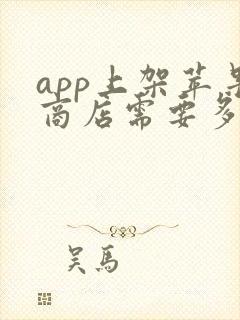 app上架苹果
商店需要多
吴馬